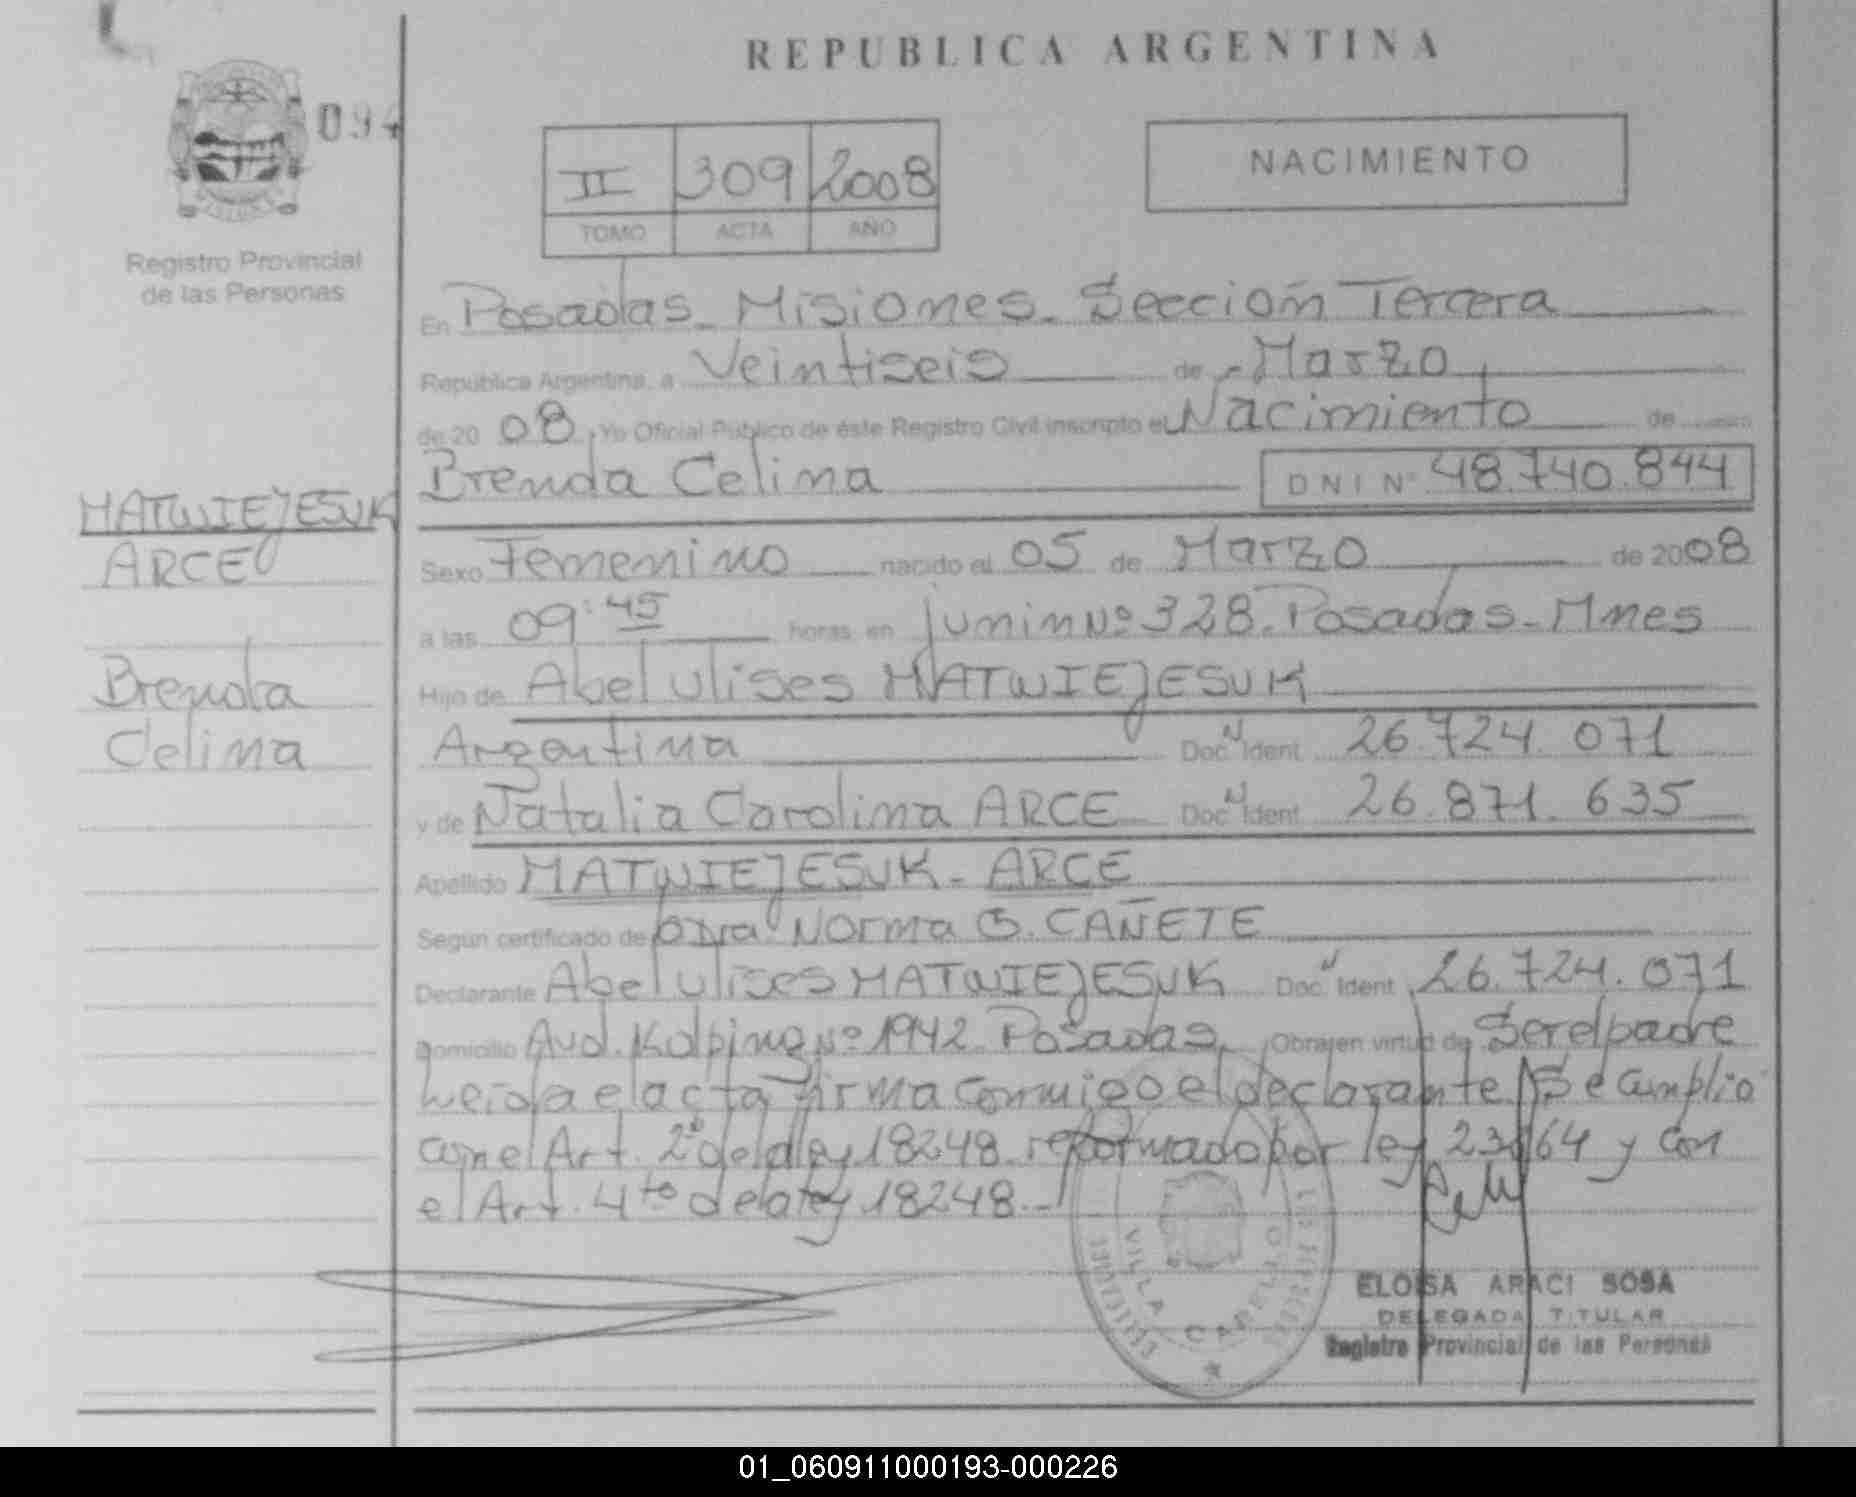 REPUBLICA ARGENTINA
094
II 309 2008
TOMO ACTA AÑO
NACIMIENTO
Registro Provincial
de las Personas
En Posadas - Misiones - Sección Tercera
República Argentina, a Veintiseis de Marzo
de 20 08, Yo Oficial Público de éste Registro Civil inscripto el Nacimiento de
Brenda Celina DNI Nº 48.740.844
MATWIEJESUK
ARCE
Brenda
Celina
Sexo Femenino nacido el 05 de Marzo de 2008
a las 09:45 horas en Junin Nº 328 - Posadas - Mnes
Hijo de Abel Ulises MATWIEJESUK
Argentina Doc. N Ident 26.724.071
y de Natalia Carolina ARCE Doc. N Ident 26.871.635
Apellido MATWIEJESUK - ARCE
Según certificado de Dra Norma CAÑETE
Declarante Abel Ulises MATWIEJESUK Doc. N Ident 26.724.071
Domicilio Avd. Kolping Nº 1942 Posadas, Obra en virtud de Ser el padre
Leida el acta firma conmigo el declarante. Se cumplio
con el Art. 2º de la ley 18248 reformado por ley 23264 y con
el Art. 4to de la ley 18248.-
VILLA CABELLO
ELOISA ARACI SOSA
DELEGADA TITULAR
Registro Provincial de las Personas
01_060911000193-000226